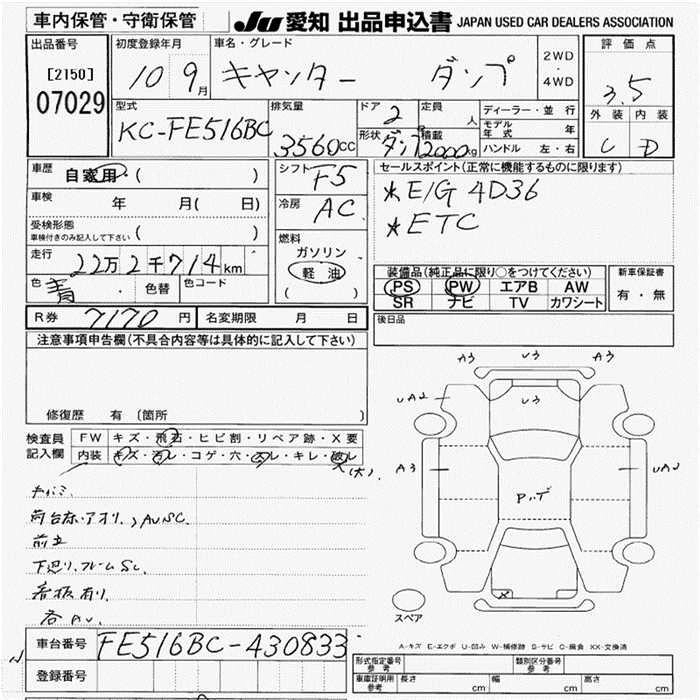 車内保管・守衛保管
JU 愛知 出品申込書 JAPAN USED CAR DEALERS ASSOCIATION
出品番号
[2150]
07029
初度登録年月
10 9月
車名・グレード
キャンター ダンプ
2WD
・
4WD
評価点
3.5
外装 内装
C D
型式
KC-FE516BC
排気量
3560cc
ドア 2
形状 ダンプ
定員 人
積載 2000kg
ディーラー・並行
モデル年式 年
ハンドル 左・右
車歴 自家用 ( )
車検 年 月( 日)
受検形態
車検付きのみ記入して下さい ( )
走行 22万2千714km
色 青 色替 色コード
シフト F5
冷房 AC
燃料
ガソリン
軽油
( )
セールスポイント(正常に機能するものに限ります)
*E/G 4D36
*ETC
装備品(純正品に限り○をつけてください)
PS PW エアB AW
SR ナビ TV カワシート
新車保証書
有・無
R券 7170円 名変期限 月 日
後日品
注意事項申告欄(不具合内容等は具体的に記入して下さい)
修復歴 有 (箇所 )
検査員
記入欄
FW キズ・飛石・ヒビ割・リペア跡・X要
内装 キズ・汚レ・コゲ・穴・スレ・キレ・破レ(大)
荷台床,アオリ,AUSC.
下廻り,フレームSC.
看板有り.
各AU.
A3 U3 A3
UA2 U3
A3 UA2
X
スペア
A-キズ E-エクボ U-凹み W-補修跡 S-サビ C-腐食 XX-交換済
車台番号 FE516BC-430833
登録番号
形式指定番号
参考
類別区分番号
参考
車庫証明用
参考
長さ cm 幅 cm 高さ cm